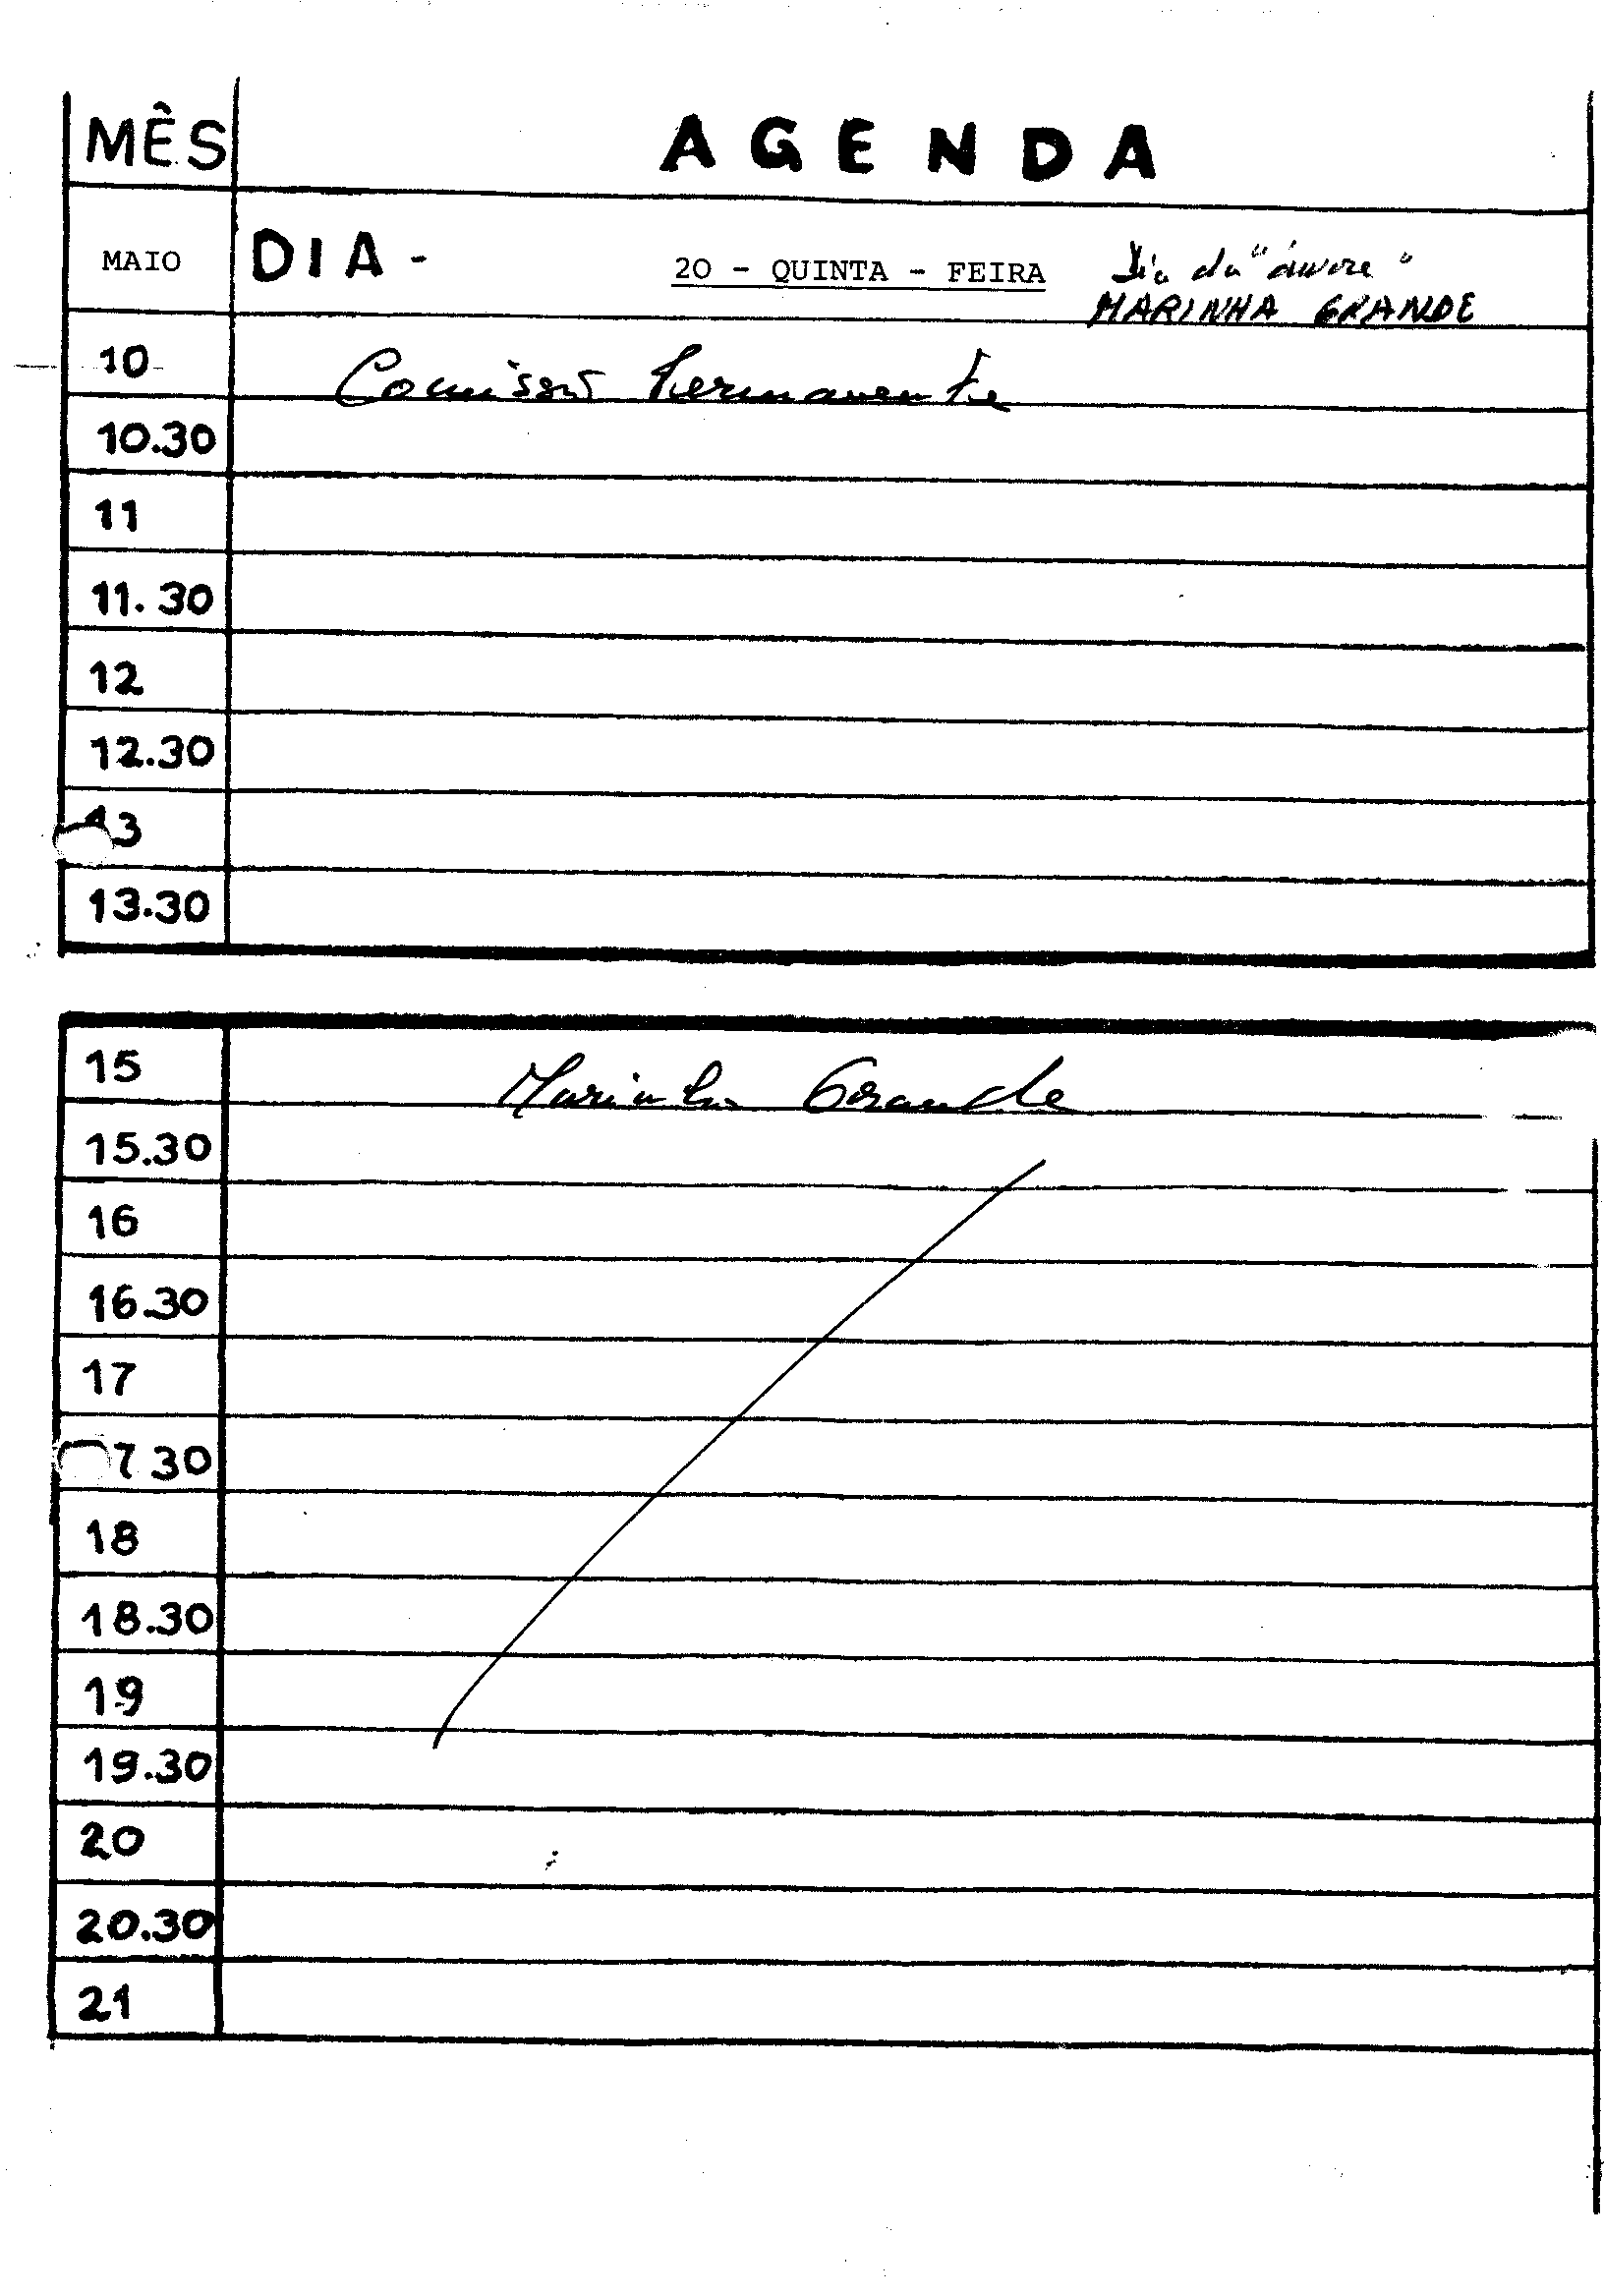 MÊS AGENDA
MAIO DIA - 20 - QUINTA - FEIRA Dia da "árvore"
MARINHA GRANDE
10 Comissão Permanente
10.30
11
11.30
12
12.30
13
13.30
15 Marinha Grande
15.30
16
16.30
17
7.30
18
18.30
19
19.30
20
20.30
21